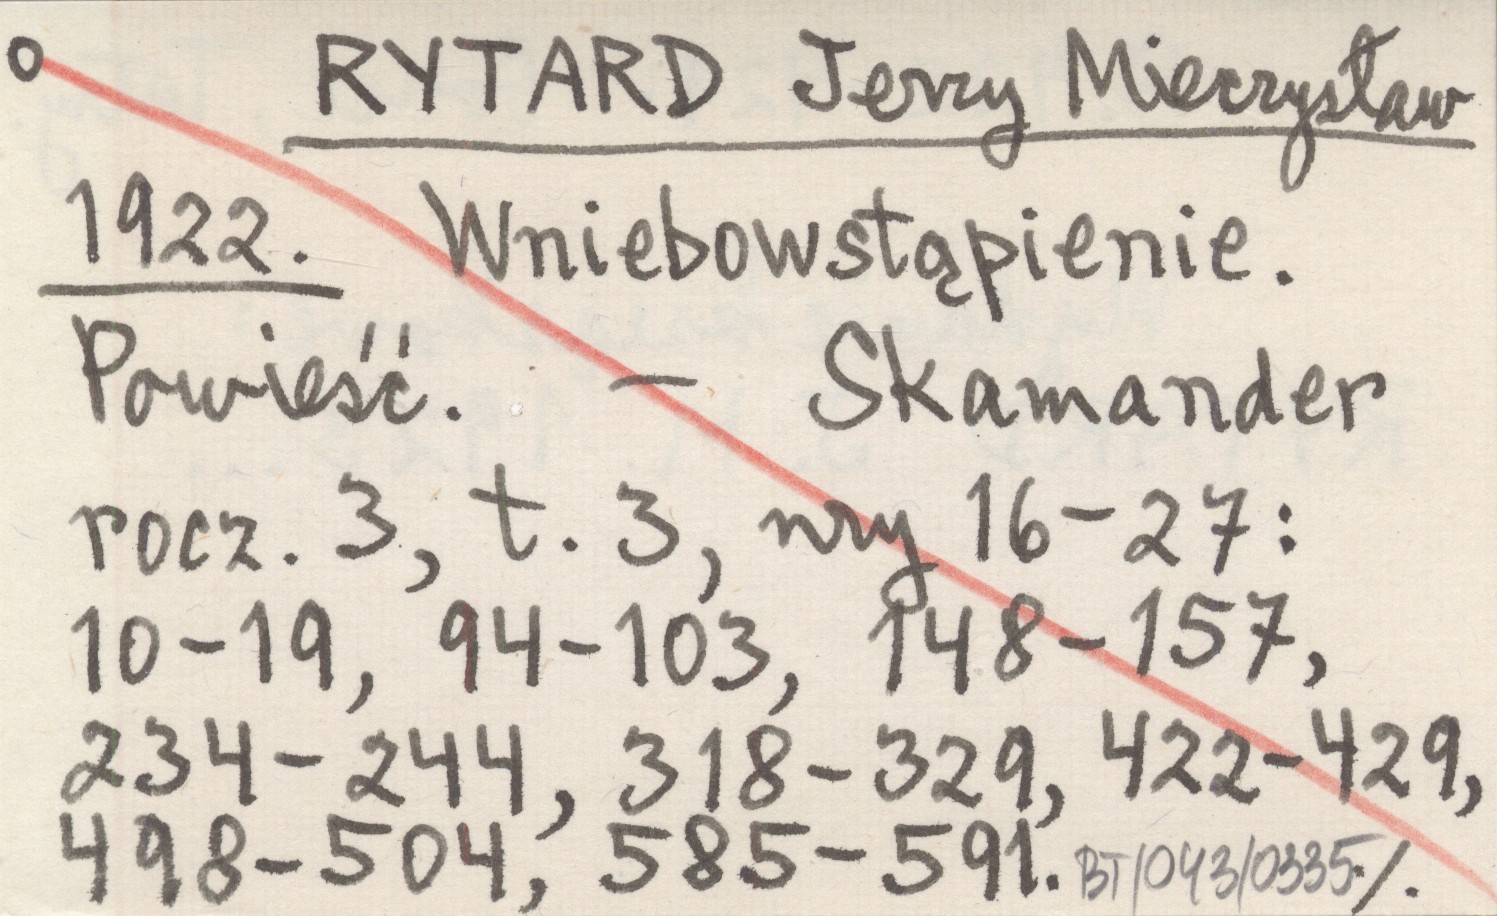 o RYTARD Jerzy Mieczysław
1922. Wniebowstąpienie.
Powieść. – Skamander
rocz. 3, t. 3, nry 16–27:
10–19, 94–103, 148–157,
234–244, 318–329, 422–429,
498–504, 585–591. BT/043/0335./.